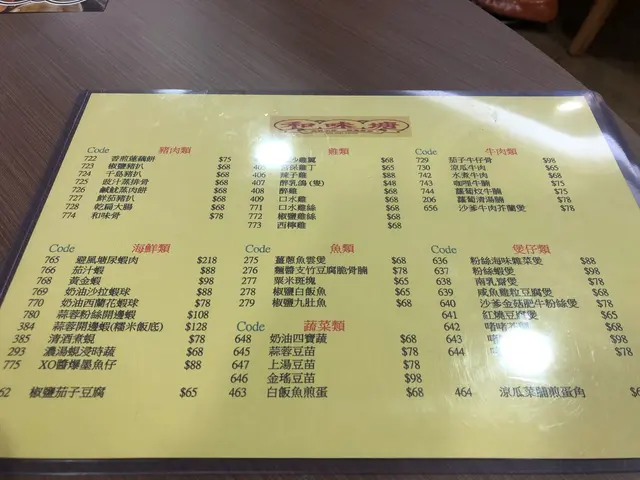 和味廊
Code 豬肉類
722 香煎蓮藕餅 $75
723 椒鹽豬扒 $68
724 千島豬扒 $68
725 豉汁蒸排骨 $68
726 鹹魷蒸肉餅 $68
727 鮮茄豬扒 $68
728 乾扁大腸 $68
774 和味骨 $78
雞類
沙雞翼 $68
保雞丁 $65
406 辣子雞 $88
407 醉乳鴿 (隻) $48
408 醉雞 $68
409 口水雞 $68
771 口水雞絲 $68
772 椒鹽雞絲 $68
773 西檸雞 $68
Code 牛肉類
729 茄子牛仔骨 $98
730 涼瓜牛肉 $65
742 水煮牛肉 $68
743 咖喱牛腩 $75
744 蘿蔔炆牛腩 $75
206 蘿蔔清湯腩 $78
656 沙爹牛肉芥蘭煲 $78
Code 海鮮類
765 避風塘尿蝦肉 $218
766 茄汁蝦 $88
768 黃金蝦 $98
769 奶油沙拉蝦球 $78
770 奶油西蘭花蝦球 $78
780 蒜蓉粉絲開邊蝦 $108
384 蒜蓉開邊蝦(糯米飯底) $128
385 清酒煮蜆 $78
293 濃湯蜆浸時蔬 $68
775 XO醬爆墨魚仔 $88
Code 魚類
275 薑蔥魚雲煲 $68
276 麵醬支竹豆腐脆骨腩 $78
277 粟米斑塊 $65
278 椒鹽白飯魚 $65
279 椒鹽九肚魚 $68
Code 蔬菜類
648 奶油四寶蔬 $68
645 蒜蓉豆苗 $78
647 上湯豆苗 $78
646 金瑤豆苗 $98
463 白飯魚煎蛋 $68
Code 煲仔類
636 粉絲海味雜菜煲 $88
637 粉絲蝦煲 $98
638 南乳齋煲 $78
639 咸魚雞粒豆腐煲 $68
640 沙爹金菇肥牛粉絲煲 $78
641 紅燒豆腐煲 $65
642 啫啫芥蘭 $68
643
644
62 椒鹽茄子豆腐 $65
464 涼瓜菜脯煎蛋角